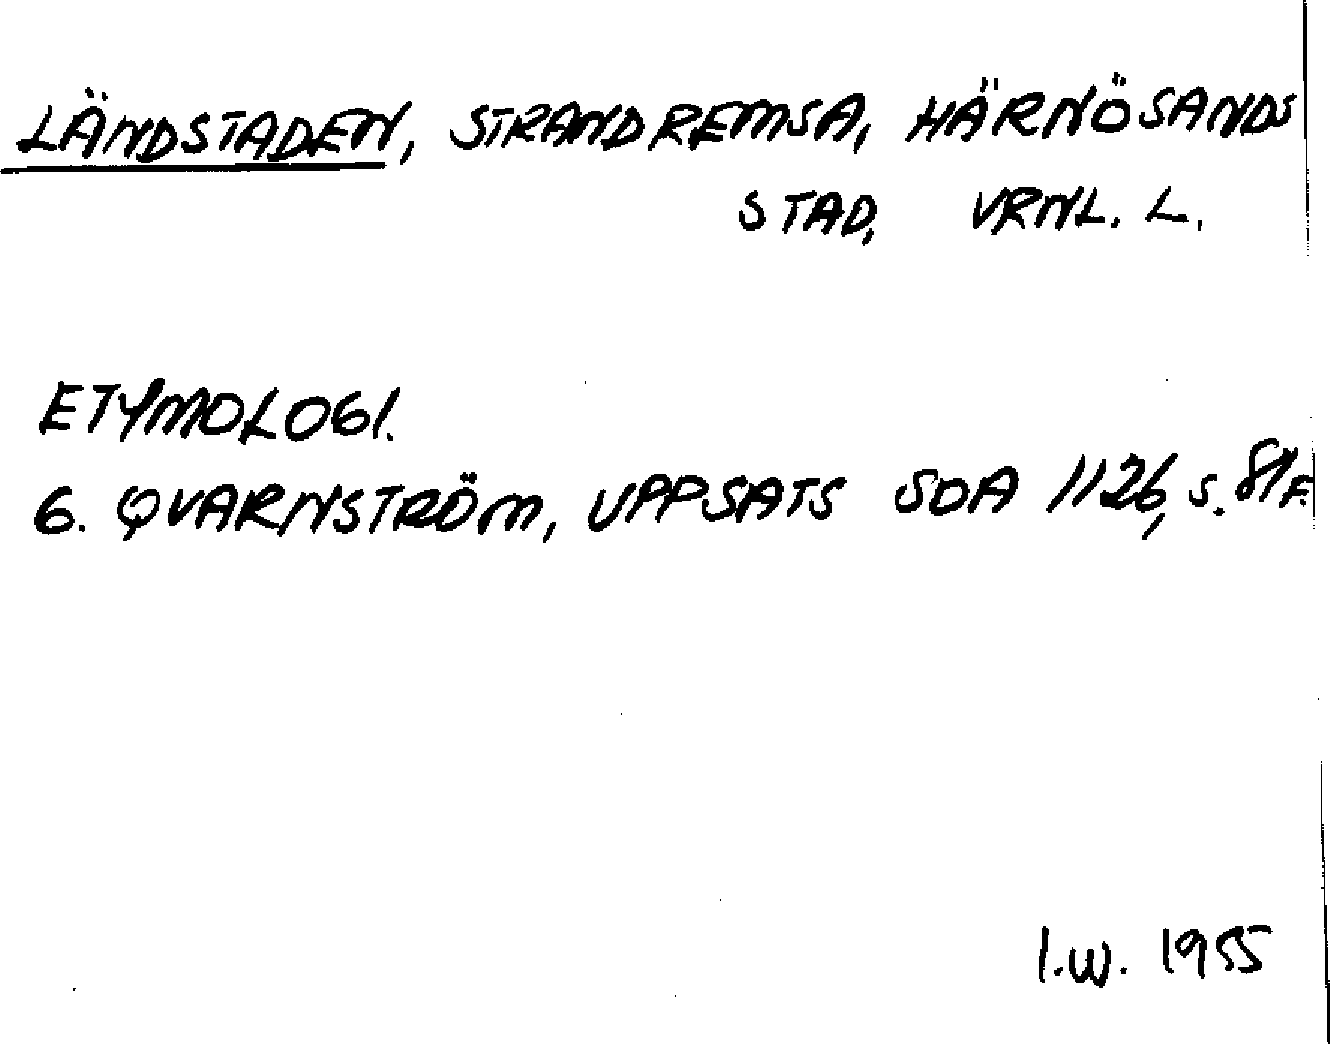 LÄNDSTADEN, STRANDREMSA, HÄRNÖSANDS
STAD, VRNL. L.
ETYMOLOGI.
G. QVARNSTRÖM, UPPSATS SOA 1126, s. 81 F.
I.W. 1955